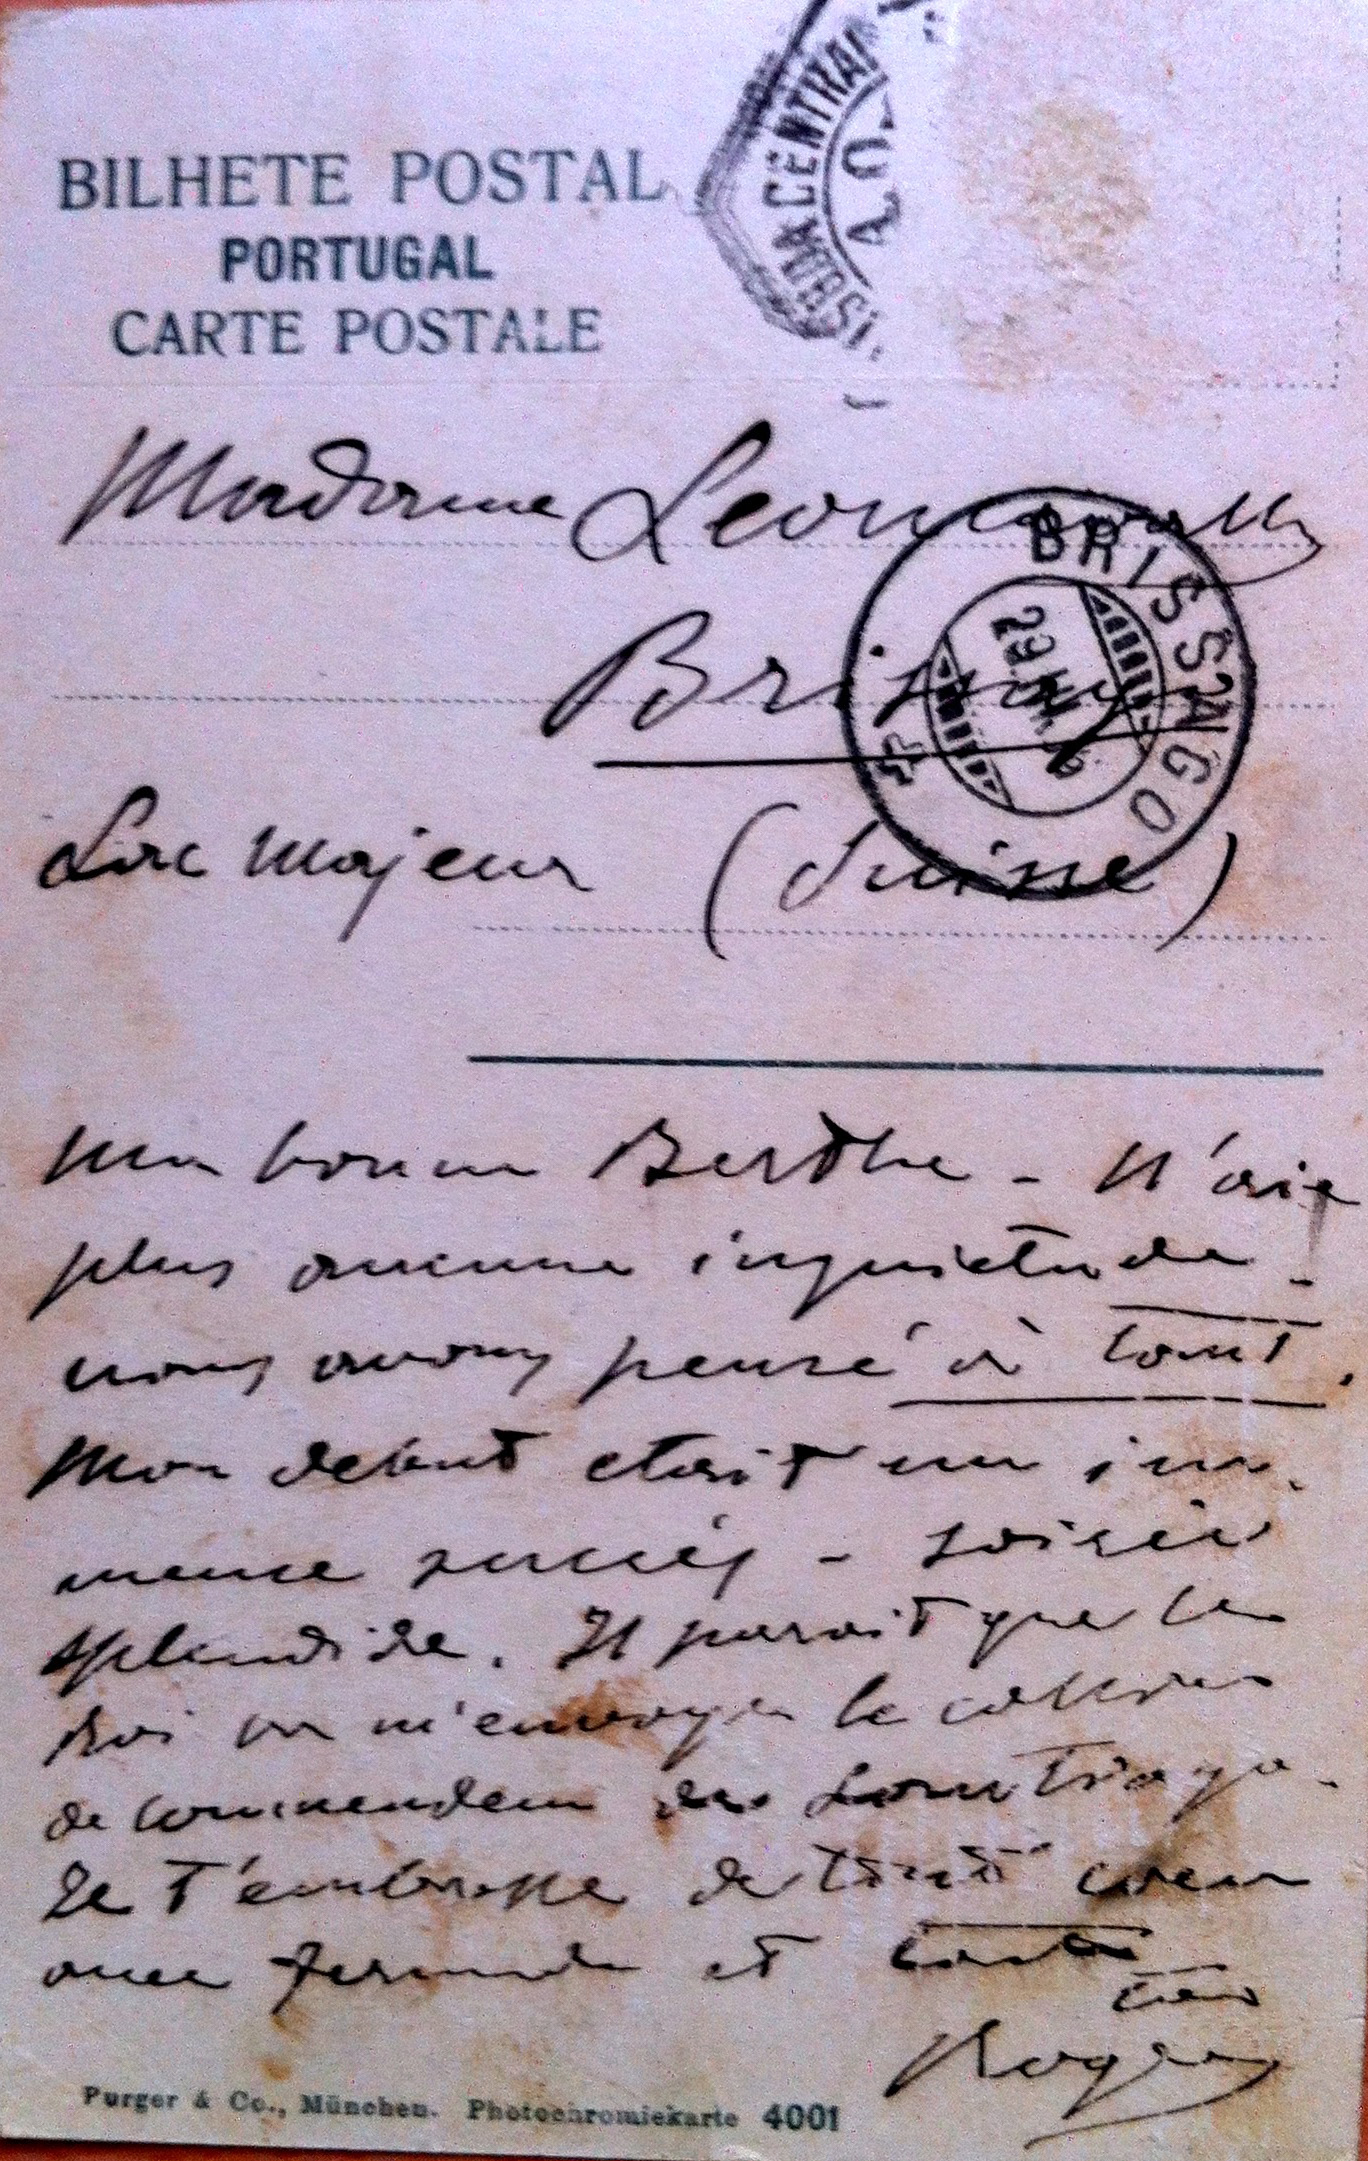 BILHETE POSTAL
PORTUGAL
CARTE POSTALE
LISBOA CENTRAL
Madame Leoncavallo
Brissago
BRISSAGO
29
Lac Majeur (Suisse)
Ma bonne Berthe - N'aie
plus aucune inquietude -
nous avons pensé à tout.
Mon debut etait un im-
mense succès - soirée
splendide. Il parait que le
Roi va m'envoyer le collier
de commendeur de
Je t'embrasse de tout coeur
avec et
Purger & Co., München. Photochromiekarte 4001